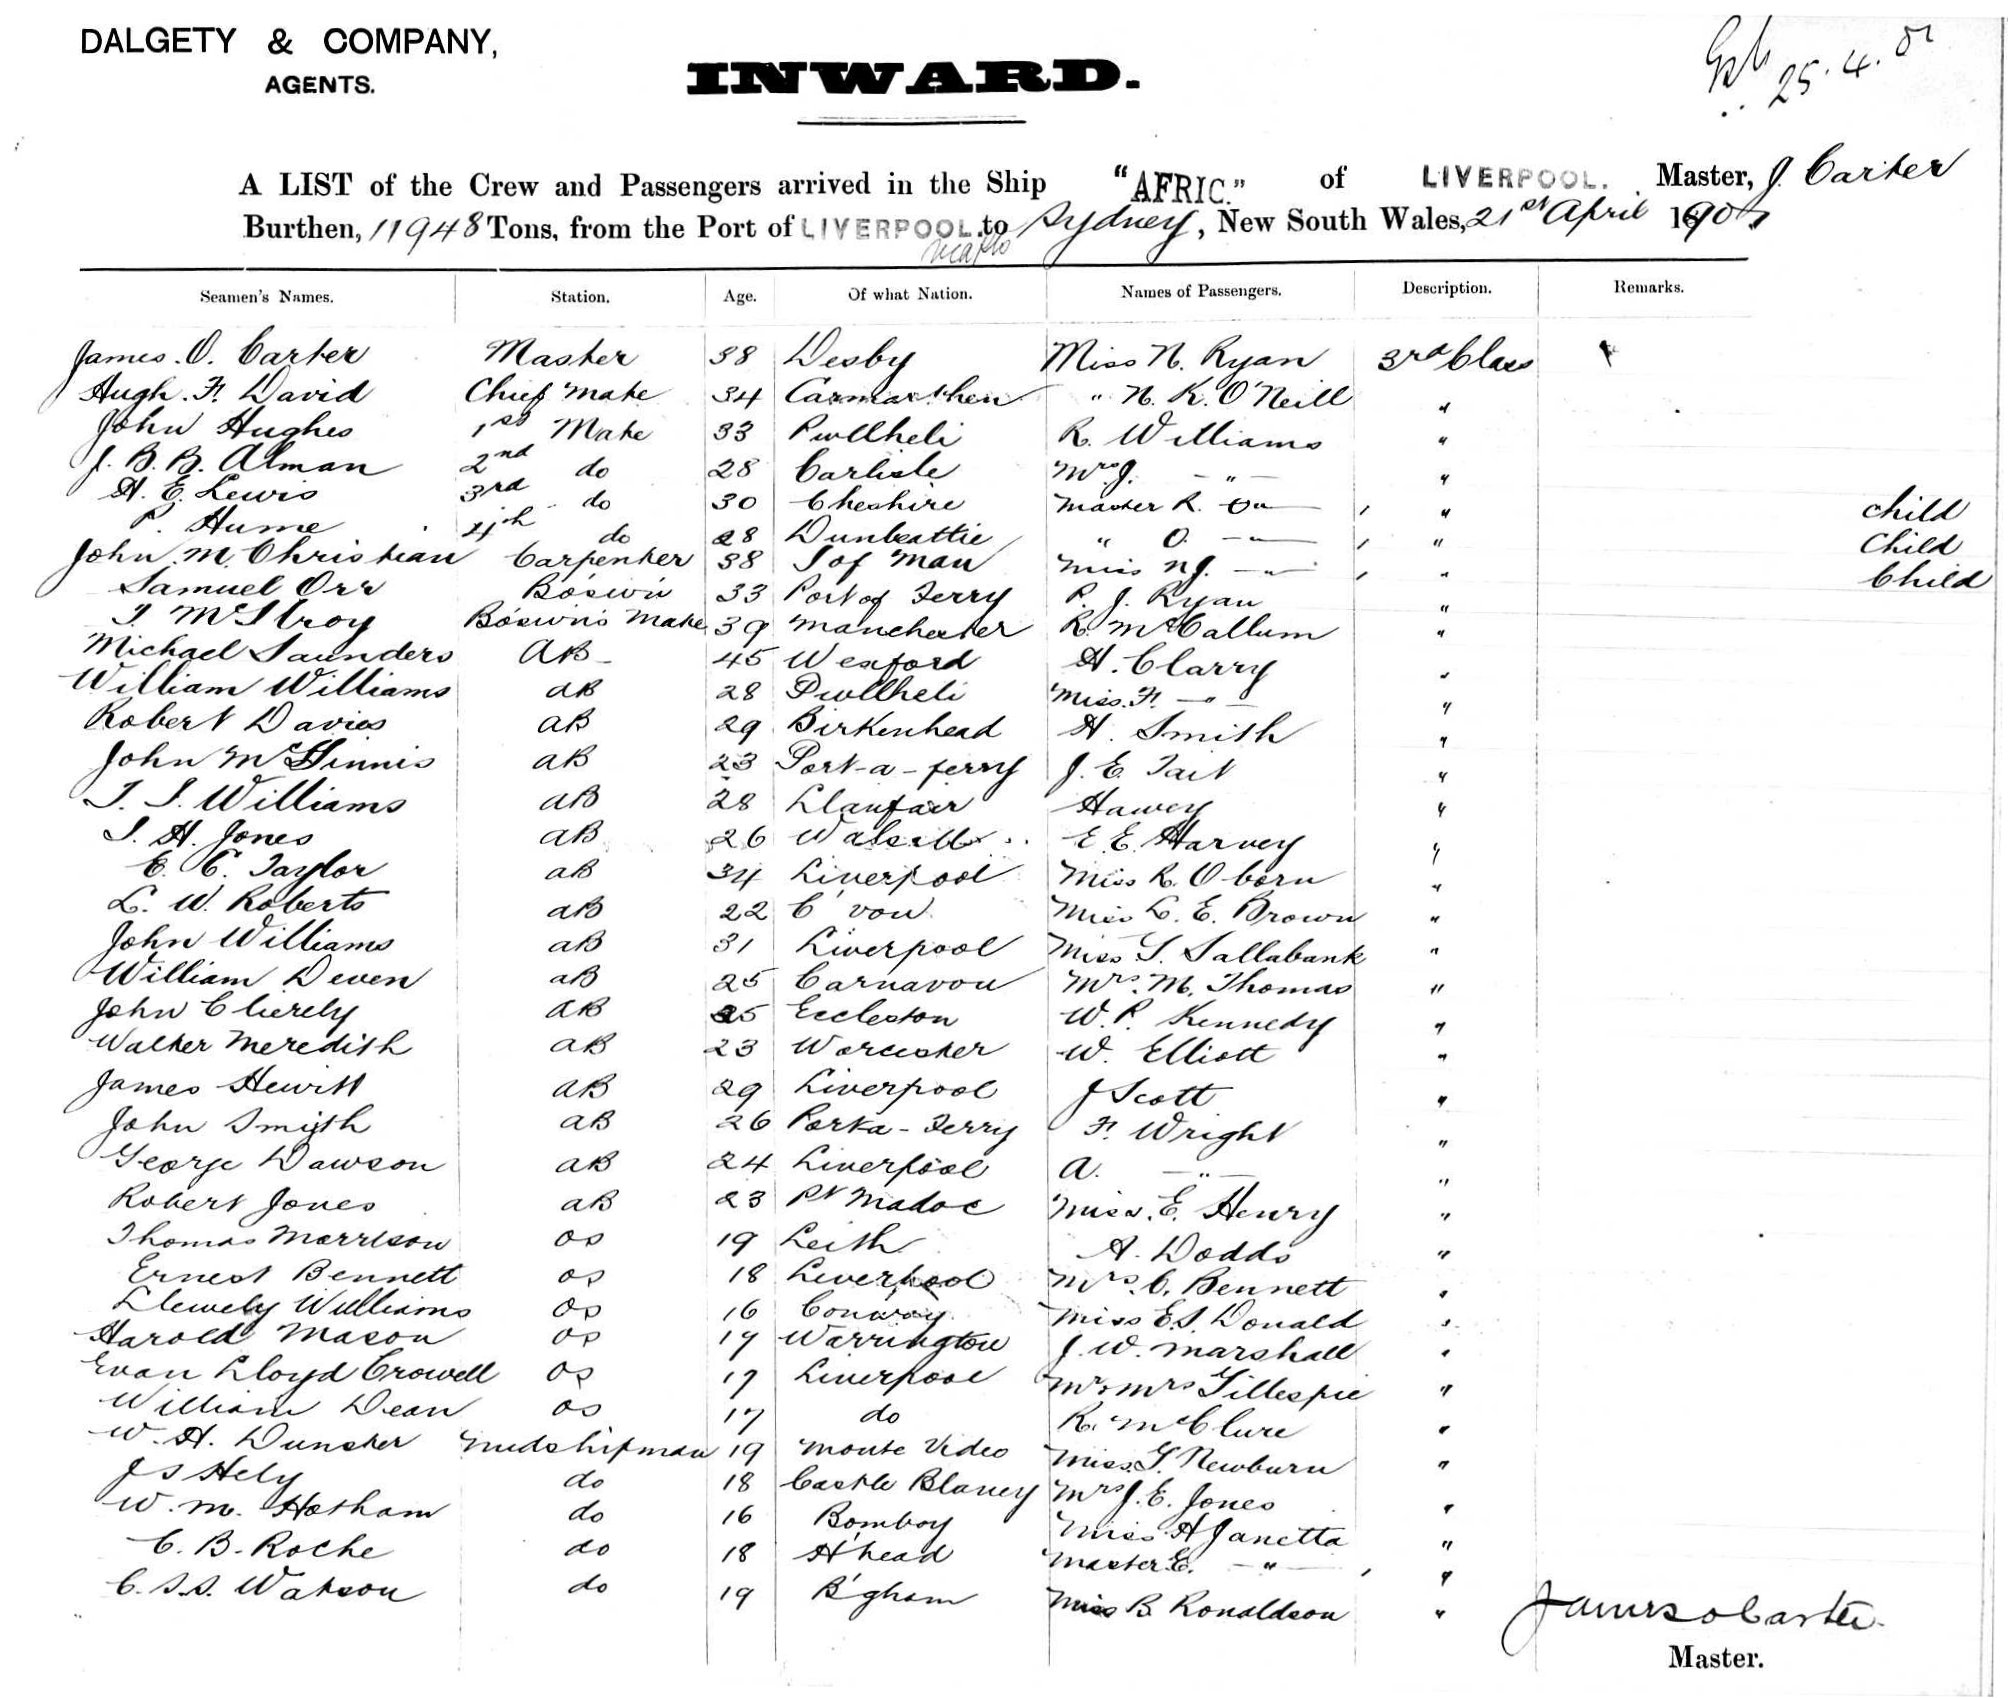 DALGETY & COMPANY,
AGENTS.
INWARD.
25.4.
A LIST of the Crew and Passengers arrived in the Ship "AFRIC." of LIVERPOOL. Master, J. Carter
Burthen, 11948 Tons, from the Port of LIVERPOOL to Sydney, New South Wales, 21st April
Seamen's Names. Station. Age. Of what Nation. Names of Passengers. Description. Remarks.
James. O. Carter Master 38 Desby Miss N. Ryan 3rd Class
Hugh. F. David Chief Mate 34 Carmarthen " N. K. O'Neill "
John Hughes 1st Mate 33 Pwllheli R. Williams "
J. B. B. Alman 2nd do 28 Carlisle Mrs J. — " — "
H. E. Lewis 3rd do 30 Cheshire Master R. Do " child
P. Hume 4th do 28 Dunbeattie " O. — " — " Child
John M. Christian Carpenter 38 I of Man Miss N J. — " — " Child
Samuel Orr Bos'wn 33 Port of Ferry P. J. Ryan "
T McIlroy Bos'wn's Mate 39 Manchester R. McCallum "
Michael Saunders AB 45 Wexford H. Clarry "
William Williams AB 28 Pwllheli Miss. F. — " — "
Robert Davies AB 29 Birkenhead H. Smith "
John McGinnis AB 23 Port-a-ferry J. E. Tait "
T. I. Williams AB 28 Llanfair Hawey "
I. H. Jones AB 26 Walsall E. E. Harvey "
E. C. Taylor AB 34 Liverpool Miss R. Oborn "
L. W. Roberts AB 22 C'von Miss L. E. Brown "
John Williams AB 31 Liverpool Miss S. Sallabank "
William Deven AB 25 Carnavon Mrs. M. Thomas "
John Clierely AB 25 Eccleston W. P. Kennedy "
Walter Meredith AB 23 Worcester W. Elliott "
James Hewitt AB 29 Liverpool J Scott "
John Smith AB 26 Porta-Ferry F. Wright "
George Dawson AB 24 Liverpool A. — " — "
Robert Jones AB 23 Pt Madoc Miss. E. Henry "
Thomas Morrison OS 19 Leith A. Dodds "
Ernest Bennett OS 18 Liverpool Mrs. C. Bennett "
Llewely Williams OS 16 Conway Miss E. S. Donald "
Harold Mason OS 17 Warrington J. W. Marshall "
Evan Lloyd Crowell OS 17 Liverpool Mr & Mrs Gillespie "
William Dean OS 17 do R. McClure "
W. H. Dunster Midshipman 19 Monte Video Miss. G. Newburn "
J S Hely do 18 Castle Blaney Mrs J. E. Jones "
W. M. Hotham do 16 Bombay Miss A Janetta "
C. B. Roche do 18 H'head Master E. — " — "
C. S. S. Watson do 19 B'gham Miss B. Ronaldson "
James O Carter
Master.